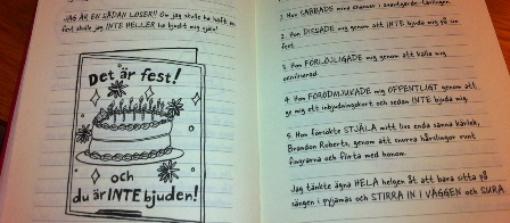 JAG ÄR EN SÅDAN LOSER!! Om jag skulle ha haft en
fest skulle jag INTE HELLER ha bjudit mig själv!
Det är fest!
och
du är INTE bjuden!
1. Hon SABBADE mina chanser i avantgarde-tävlingen.
2. Hon DISSADE mig genom att INTE bjuda mig på sin
fest.
3. Hon FÖRLÖJLIGADE mig genom att kalla mig
4. Hon FÖRÖDMJUKADE mig OFFENTLIGT genom att
ge mig ett inbjudningskort och sedan INTE bjuda mig.
5. Hon försökte STJÄLA mitt livs enda sanna kärlek,
Brandon Roberts, genom att snurra hårslingor runt
fingrarna och flirta med honom.
Jag tänkte ägna HELA helgen åt att bara sitta på
sängen i pyjamas och STIRRA IN I VÄGGEN och SURA.